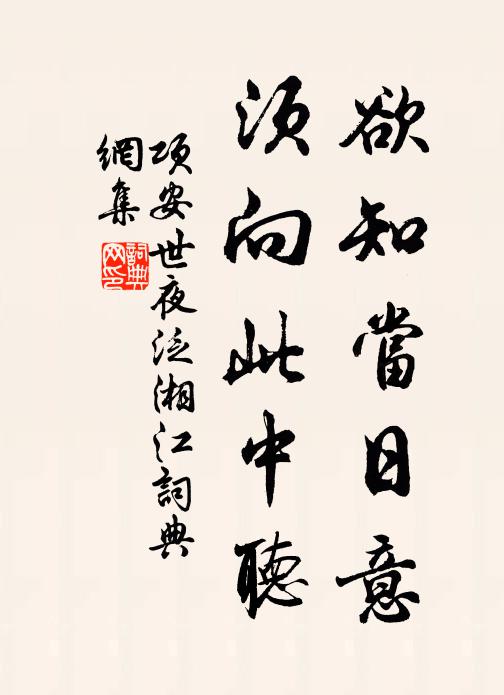 欲知當日意
須向此中聽
項安世夜泛湘江詞典
網集
詞典網印